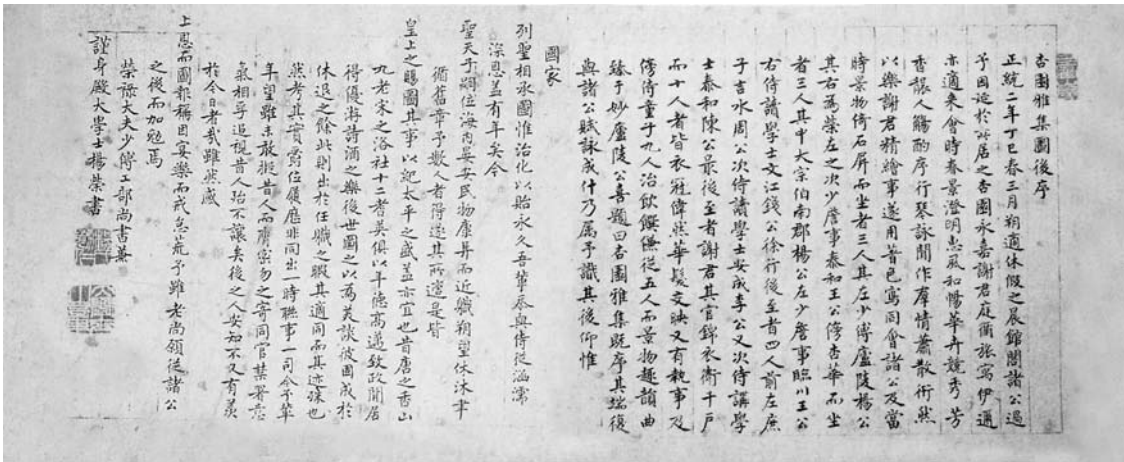 杏園雅集圖後序
正統二年丁巳春三月朔適休假之晨館閣諸公過
予因延於所居之杏園永嘉謝君庭循旅寓伊邇
亦適來會時春景澄明惠風和暢華卉競秀芳
香襲人觴酌序行琴詠間作群情蕭散衎然
以樂謝君精繪事遂用著色寫同會諸公及當
時景物倚石屏而坐者三人其左少傅廬陵楊公
其右為榮左之次少詹事泰和王公傍杏華而坐
者三人其中大宗伯南郡楊公左少詹事臨川王公
右侍讀學士文江錢公徐行後至者四人前左庶
子吉水周公次侍讀學士安成李公又次侍講學
士泰和陳公最後至者謝君其官錦衣衛千戶
而十人者皆衣冠偉然華髮交映又有執事及
傍侍童子九人治飲饌傔從五人而景物趣韻曲
臻于妙廬陵公喜題曰杏園雅集既序其端復
與諸公賦詠成什乃屬予識其後仰惟
國家
列聖相承圖惟治化以貽永久吾輩叅與侍從涵濡
深恩蓋有年矣今
聖天子嗣位海內晏安民物康阜而近職朔望休沐聿
循舊章予數人者得遂其所適是皆
皇上之賜圖其事以紀太平之盛蓋亦宜也昔唐之香山
九老宋之洛社十二耆英俱以年德高邁致政閒居
得優游詩酒之樂後世圖之以為美談彼固成於
休退之餘此則出於任職之暇其適同而其迹殊也
然考其實爵位履歷非同出一時聯事一司今予輩
年望雖未敢擬昔人而膺密勿之寄同官禁署意
氣相孚追視昔人殆不讓矣後之人安知不又有羨
於今日者哉雖然感
上恩而圖報稱因宴樂而戒怠荒予雖老尚願從諸公
之後而加勉焉
榮祿大夫少傅工部尚書兼
謹身殿大學士楊榮書